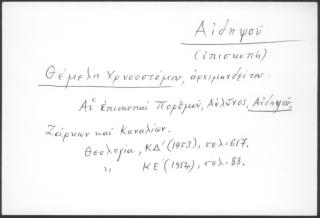 Αἰδηψοῦ
(ἐπισκοπὴ)
Θέμελη Χρυσοστόμου, ἀρχιμανδρίτου:
Αἱ Ἐπισκοπαὶ Πορθμοῦ, Αὐλῶνος, Αἰδηψοῦ,
Ζάρκων καὶ Καναλίων.
Θεολογία, ΚΔ' (1953), σελ. 617.
„ ΚΕ' (1954), σελ. 88.